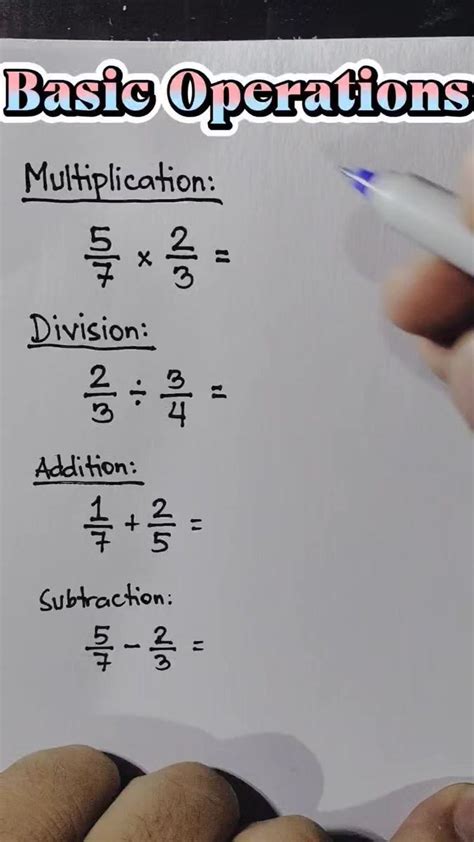 Basic Operations
Multiplication:
5/7 × 2/3 =
Division:
2/3 ÷ 3/4 =
Addition:
1/7 + 2/5 =
Subtraction:
5/7 − 2/3 =